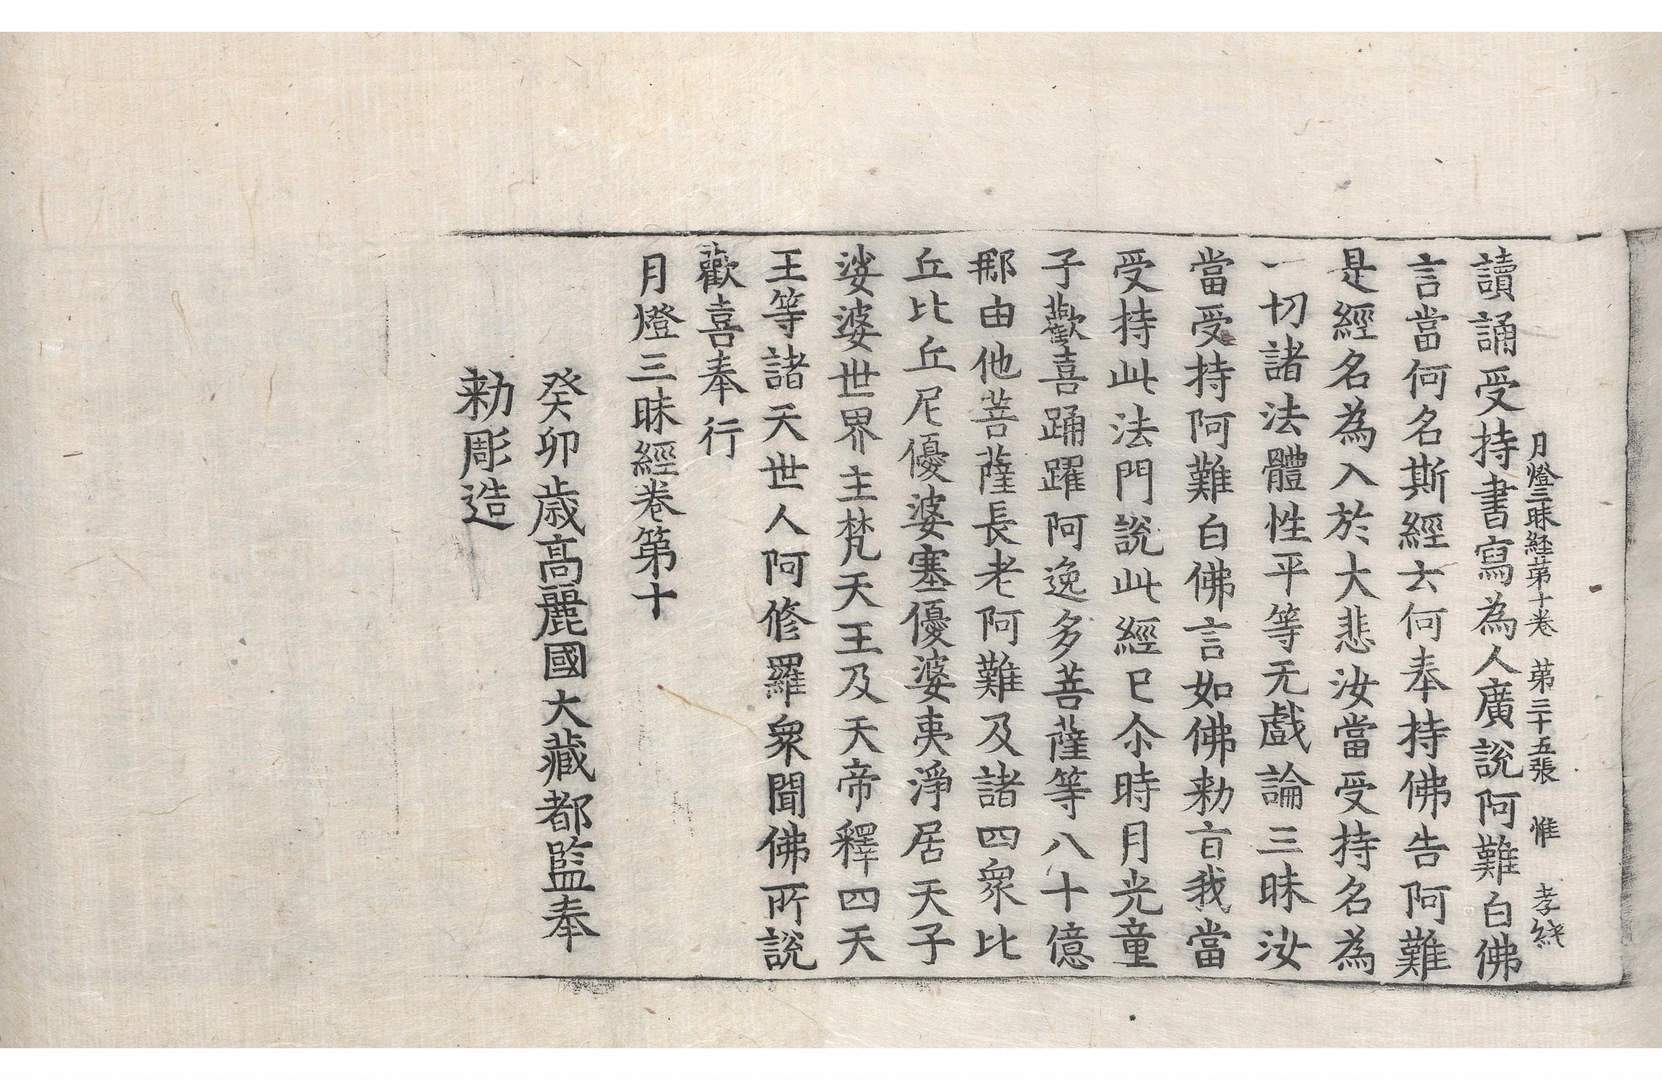 月燈三昧経苐十卷 苐三十五張 惟 孝
讀誦受持書寫為人廣說阿難白佛
言當何名斯經云何奉持佛告阿難
是經名為入於大悲汝當受持名為
一切諸法體性平等无戲論三昧汝
當受持阿難白佛言如佛勑旨我當
受持此法門說此經已尒時月光童
子歡喜踊躍阿逸多菩薩等八十億
那由他菩薩長老阿難及諸四衆比
丘比丘尼優婆塞優婆夷淨居天子
娑婆世界主梵天王及天帝釋四天
王等諸天世人阿修羅衆聞佛所說
歡喜奉行
月燈三昧經卷第十
癸卯歲高麗國大藏都監奉
勑彫造